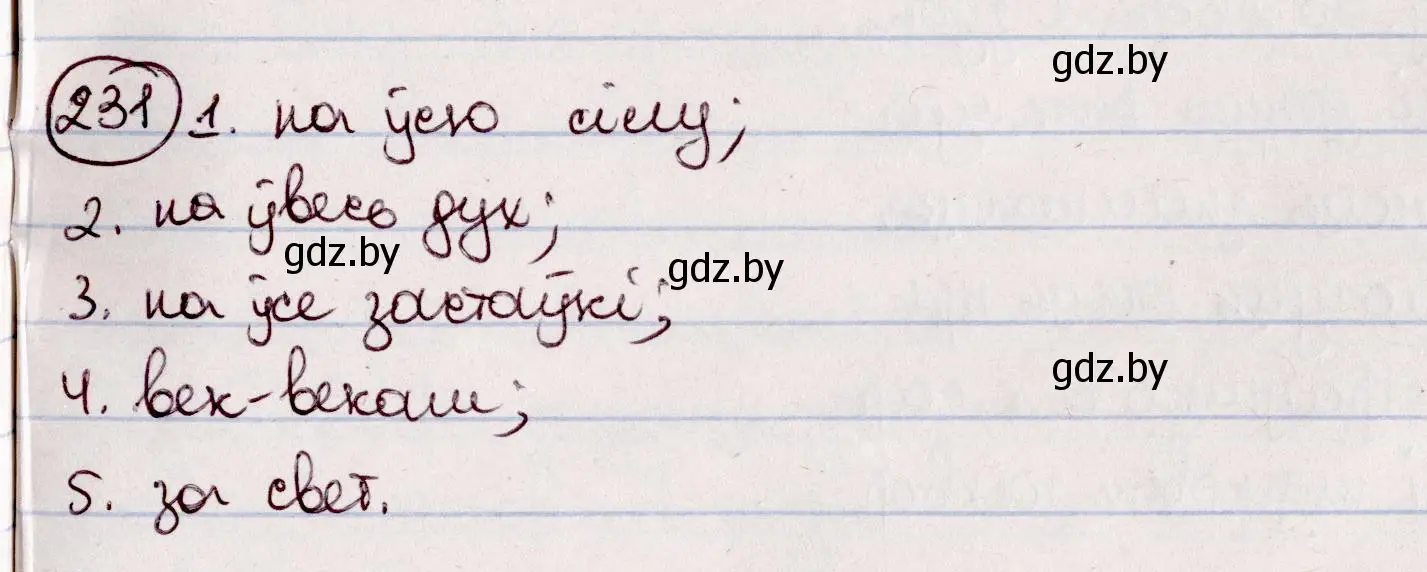 gdz.by
231 1. на ўсю сілу;
2. на ўвесь дух;
gdz.by
gdz.by
3. на ўсе застаўкі;
gdz.by
4. век-векам;
5. за свет.